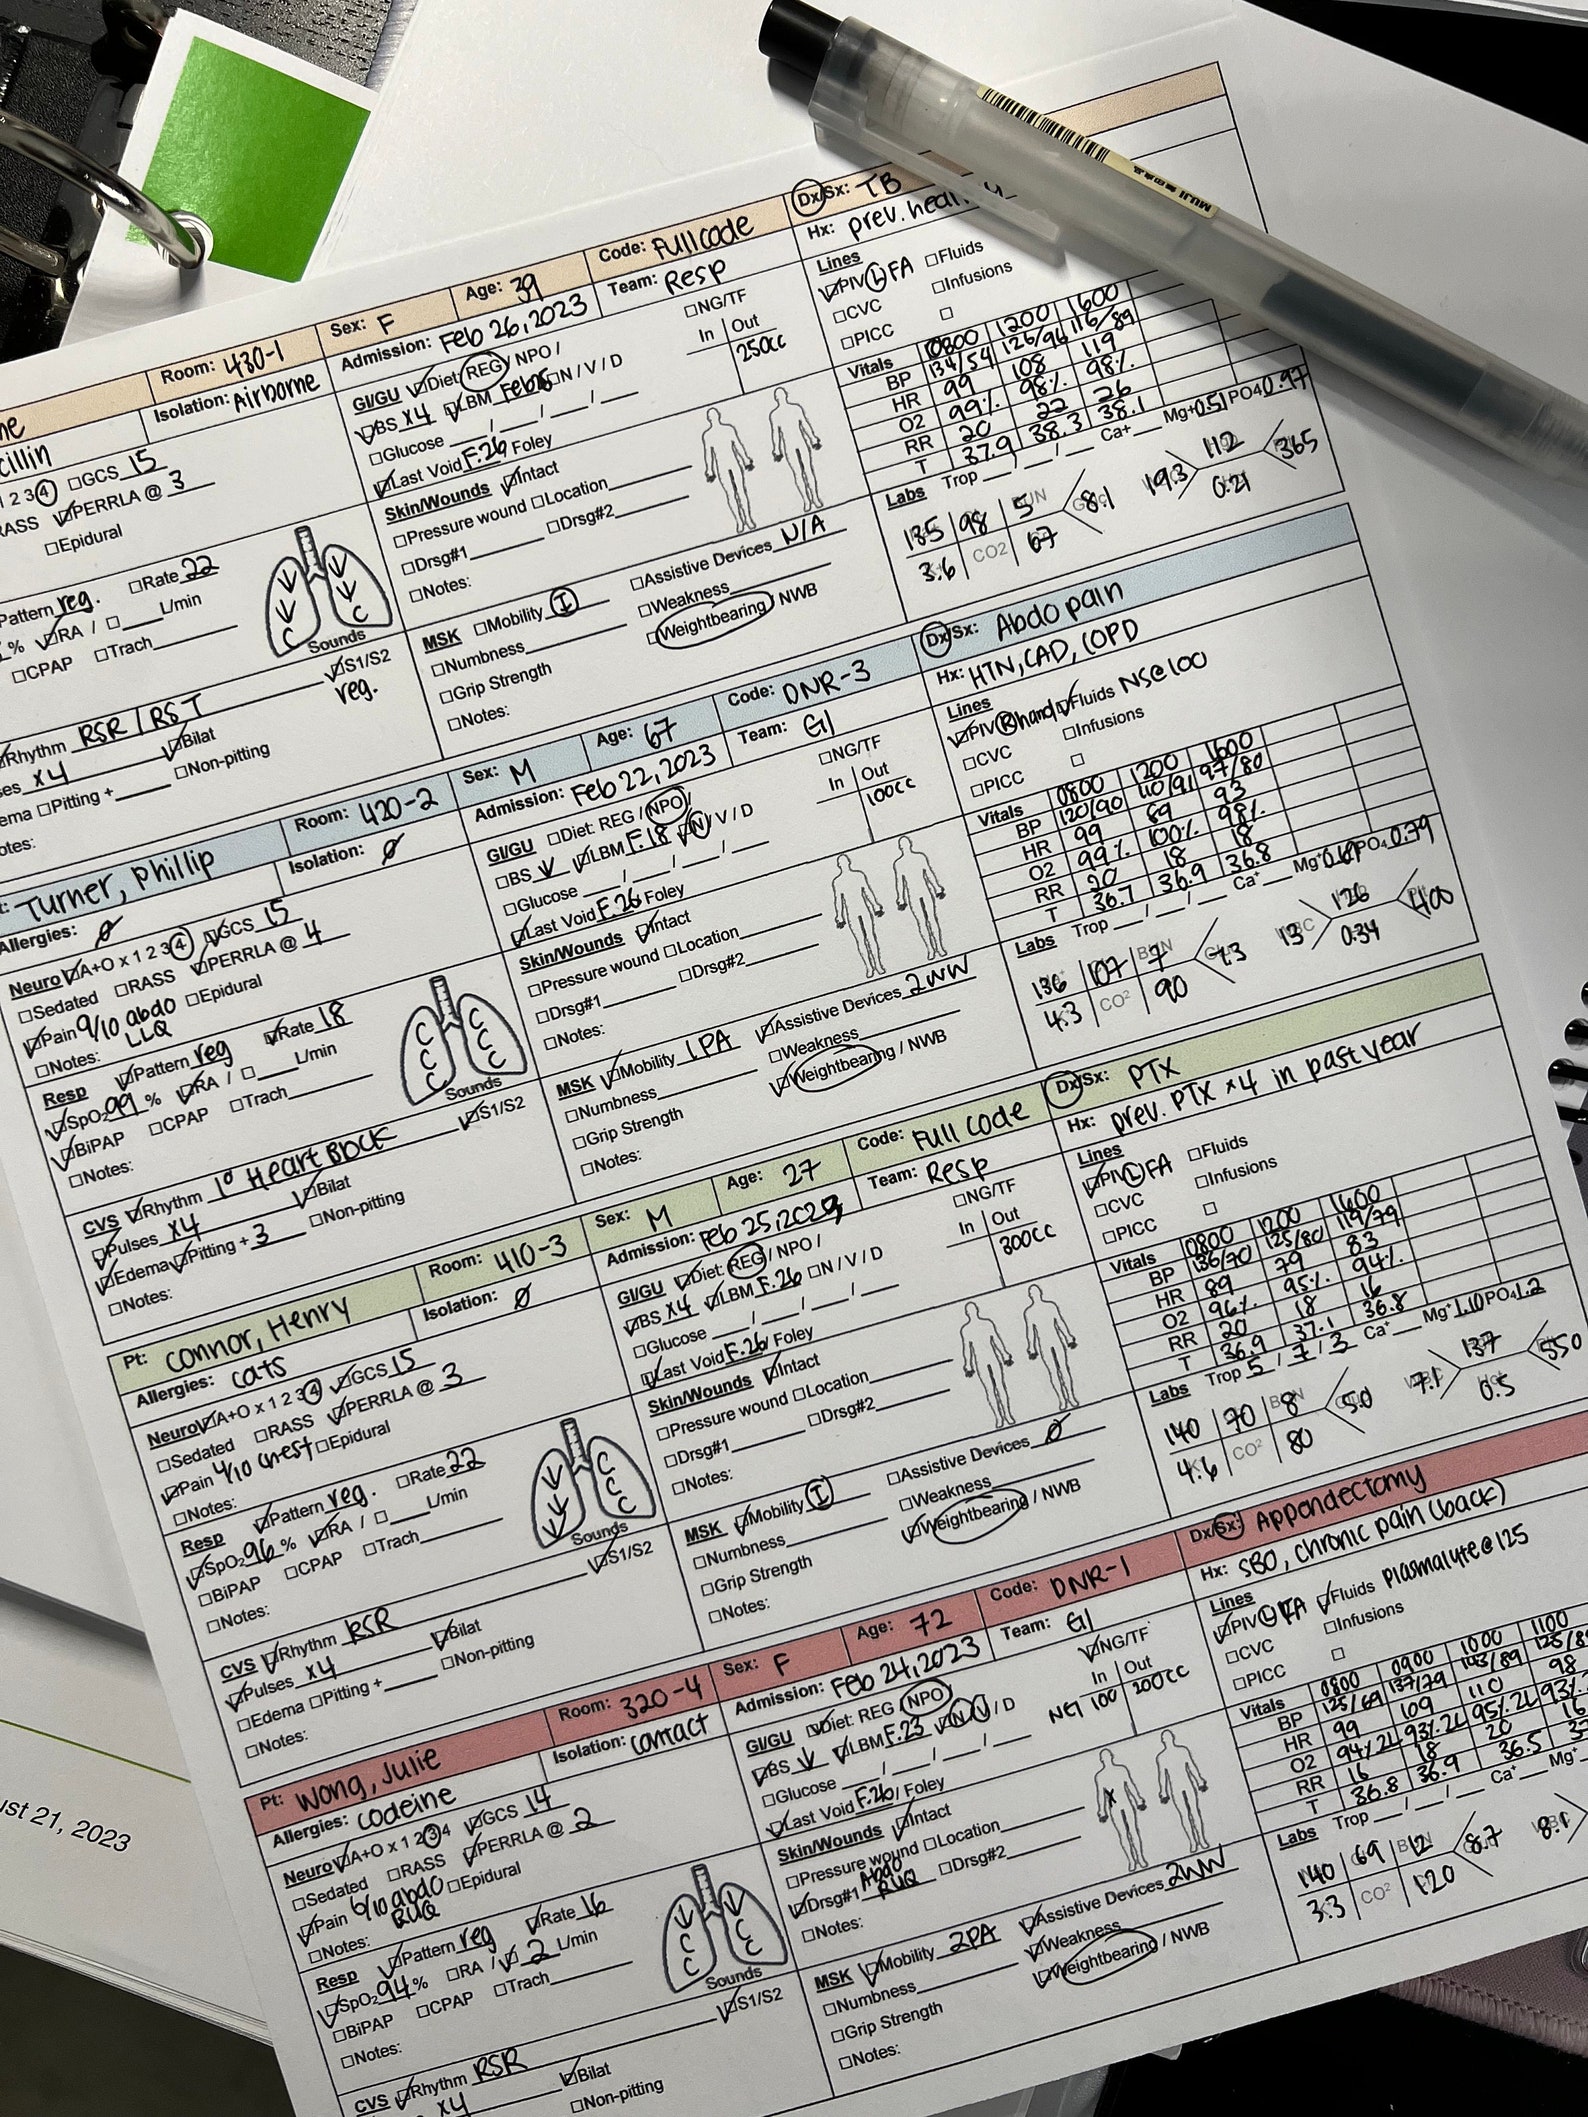 MUJI 無印良品
Room: 430-1 Sex: F Age: 39 Code: Full code Dx/Sx: TB
Isolation: Airborne Admission: Feb 26, 2023 Team: Resp Hx: prev.
cillin
1 2 3 4 □GCS 15
RASS PERRLA @ 3
□Epidural
Pattern reg. □Rate 22
% RA / □ L/min
□CPAP □Trach
Sounds
S1/S2
reg.
Rhythm RSR / RST
x4 Bilat
□Pitting + □Non-pitting
GI/GU Diet: REG / NPO / □NG/TF
BS x4 LBM □N / V / D In Out
250cc
□Glucose / / /
Last Void F.26 / Foley
Skin/Wounds Intact
□Pressure wound □Location
□Drsg#1 □Drsg#2
□Notes:
MSK □Mobility I □Assistive Devices N/A
□Numbness □Weakness
□Grip Strength □Weightbearing / NWB
□Notes:
Lines
PIV L FA □Fluids
□CVC □Infusions
□PICC □
Vitals 0800 1200 1600
BP 134/54 126/96 116/89
HR 99 108 119
O2 99% 98% 98%
RR 20 22 26
T 37.9 38.3 38.1
Labs Trop / / Ca+ Mg+ 0.51 PO4 0.97
135 98 5 8.1 19.3 112 365
3.6 CO2 67 0.21
Turner, Phillip Room: 420-2 Sex: M Age: 67 Code: DNR-3 Dx/Sx: Abdo pain
Allergies: Ø Isolation: Ø Admission: Feb 22, 2023 Team: GI Hx: HTN, CAD, COPD
Neuro A+O x 1 2 3 4 GCS 15
□Sedated □RASS PERRLA @ 4
Pain 9/10 abdo LLQ □Epidural
□Notes:
Resp Pattern reg Rate 18
SpO2 99 % RA / □ L/min
BiPAP □CPAP □Trach
□Notes:
Sounds
CVS Rhythm 1° Heart Block S1/S2
Pulses x4 Bilat
Edema Pitting + 3 □Non-pitting
□Notes:
GI/GU □Diet: REG / NPO / □NG/TF
BS ↓ LBM F.18 N / V / D In Out
100cc
□Glucose / / /
Last Void F.26 / Foley
Skin/Wounds Intact
□Pressure wound □Location
□Drsg#1 □Drsg#2
□Notes:
MSK Mobility 1PA Assistive Devices 2WW
□Numbness □Weakness
□Grip Strength Weightbearing / NWB
□Notes:
Lines
PIV R hand Fluids NS@100
□CVC □Infusions
□PICC □
Vitals 0800 1200 1600
BP 120/90 110/91 97/80
HR 99 89 93
O2 99% 100% 98%
RR 20 18 18
T 36.7 36.9 36.8
Labs Trop / / Ca+ Mg+ PO4 0.79
136 107 7 13 126 400
4.3 CO2 90 0.34
Pt: Connor, Henry Room: 410-3 Sex: M Age: 27 Code: Full Code Dx/Sx: PTX
Allergies: cats Isolation: Ø Admission: Feb 25, 2023 Team: Resp Hx: prev. PTX x4 in past year
Neuro A+O x 1 2 3 4 GCS 15
□Sedated □RASS PERRLA @ 3
Pain 4/10 chest □Epidural
□Notes:
Resp Pattern reg. □Rate 22
SpO2 96 % RA / □ L/min
□BiPAP □CPAP □Trach
□Notes:
Sounds
S1/S2
CVS Rhythm RSR
Pulses x4 Bilat
□Edema □Pitting + □Non-pitting
□Notes:
GI/GU Diet: REG / NPO / □NG/TF
BS x4 LBM F.26 □N / V / D In Out
300cc
□Glucose / / /
Last Void F.26 / Foley
Skin/Wounds Intact
□Pressure wound □Location
□Drsg#1 □Drsg#2
□Notes:
MSK Mobility I □Assistive Devices Ø
□Numbness □Weakness
□Grip Strength Weightbearing / NWB
□Notes:
Lines
PIV L FA □Fluids
□CVC □Infusions
□PICC □
Vitals 0800 1200 1600
BP 136/70 125/80 119/79
HR 89 79 83
O2 96% 95% 94%
RR 20 18 16
T 36.9 37.1 36.8
Labs Trop 5 / 7 / 3 Ca+ Mg+ 1.10 PO4 1.2
140 70 8 5.0 7.1 137 550
4.6 CO2 80 0.5
Pt: Wong, Julie Room: 320-4 Sex: F Age: 72 Code: DNR-1 Dx/Sx: Appendectomy
Allergies: codeine Isolation: contact Admission: Feb 24, 2023 Team: GI Hx: SBO, chronic pain (back)
Neuro A+O x 1 2 3 4 GCS 14
□Sedated □RASS PERRLA @ 2
Pain 6/10 abdo RUQ □Epidural
□Notes:
Resp Pattern reg Rate 16
SpO2 94 % □RA / 2 L/min
□BiPAP □CPAP □Trach
□Notes:
Sounds
S1/S2
CVS Rhythm RSR
x4 Bilat
□Non-pitting
GI/GU Diet: REG / NPO / NG/TF
BS ↓ LBM F.23 N / V / D In Out
NG1 100 200cc
□Glucose / / /
Last Void F.26 / Foley
Skin/Wounds Intact
□Pressure wound □Location
Drsg#1 Abdo RUQ □Drsg#2
□Notes:
MSK Mobility 2PA Assistive Devices 2WW
□Numbness Weakness
□Grip Strength Weightbearing / NWB
□Notes:
Lines
PIV L FA Fluids Plasmalyte@125
□CVC □Infusions
□PICC □
Vitals 0800 0900 1000 1100
BP 125/69 137/79 143/89
HR 99 109 110 98
O2 94% 2L 93% 2L 95% 2L
RR 16 18 20 16
T 36.8 36.9 36.5
Labs Trop / / Ca+ Mg+
140 69 12 8.7 8.1
3.3 CO2 120
ust 21, 2023